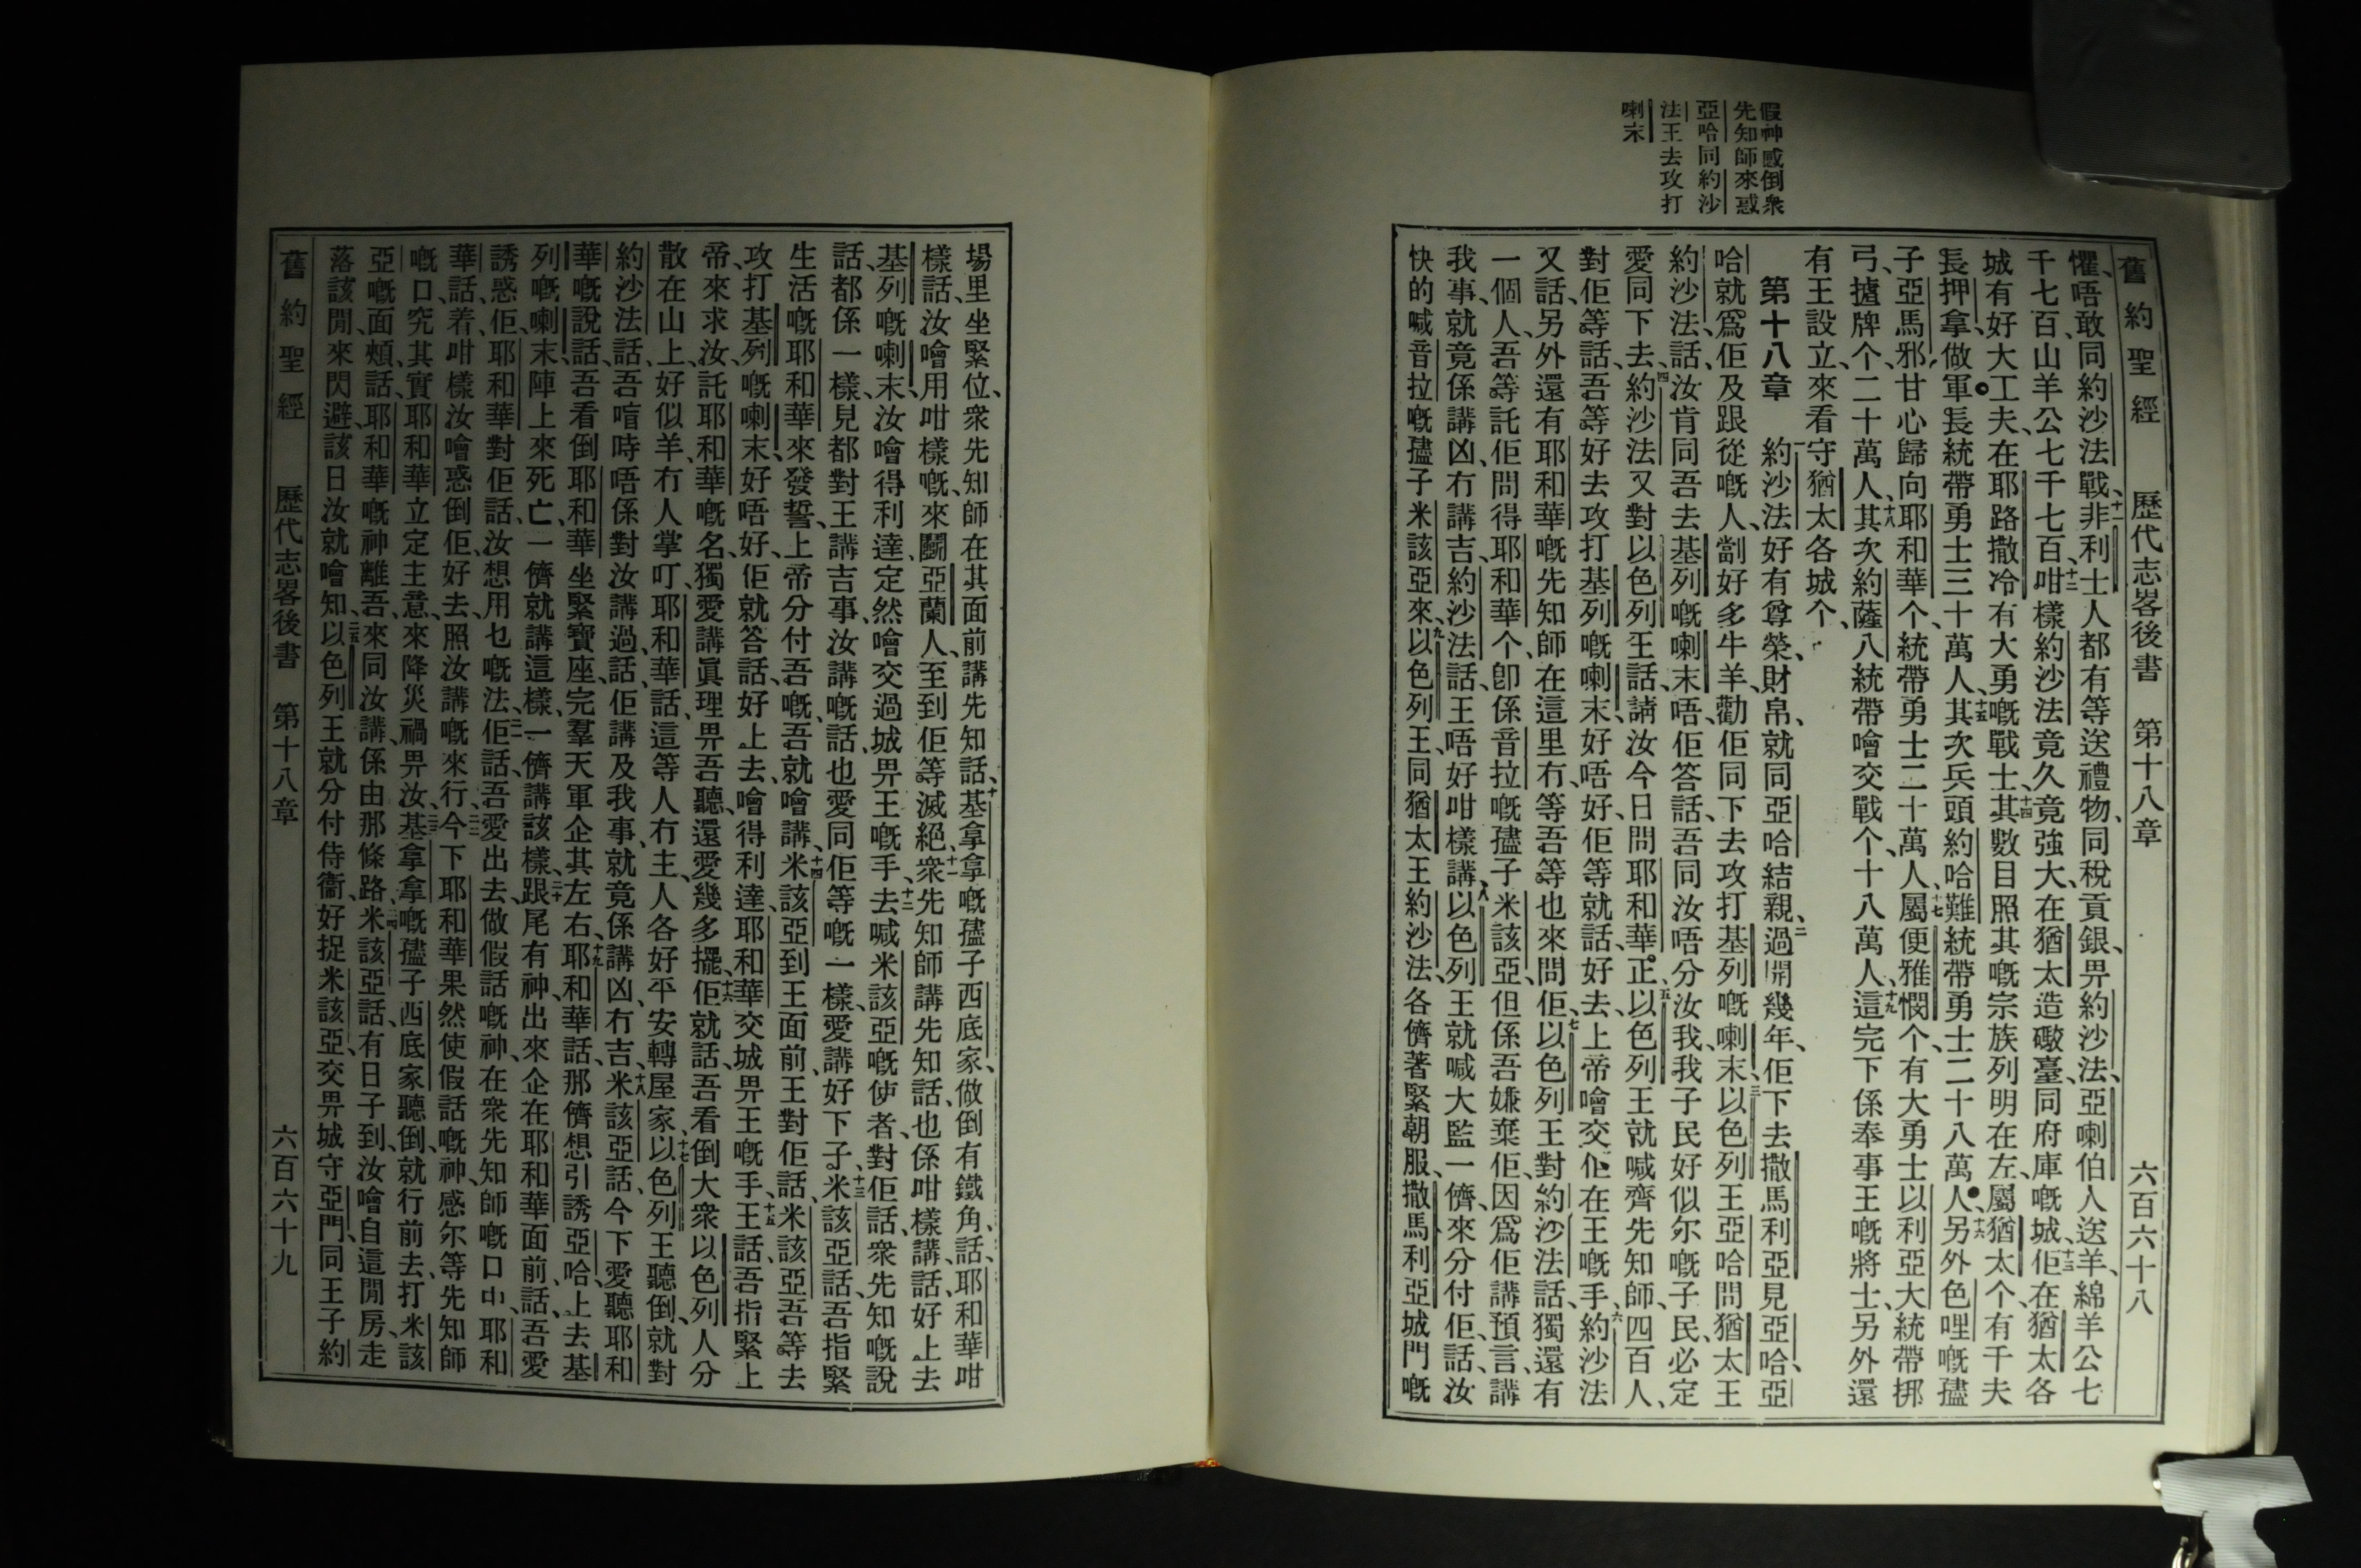 假神感倒衆
先知師來惑
亞哈同約沙
法王去攻打
喇末
舊約聖經 歷代志畧後書 第十八章 六百六十八
懼、唔敢同約沙法戰、十一非利士人都有等送禮物、同稅貢銀、畀約沙法、亞喇伯人送羊、綿羊公七
千七百、山羊公七千七百、十二咁樣約沙法竟久竟強大、在猶太造礮臺、同府庫嘅城、十三佢在猶太各
城有好大工夫、在耶路撒冷有大勇嘅戰士、十四其數目照其嘅宗族列明在左、屬猶太个、有千夫
長押拿做軍長、統帶勇士三十萬人、十五其次兵頭約哈難、統帶勇士二十八萬人、十六另外色哩嘅孻
子亞馬邪、甘心歸向耶和華个、統帶勇士二十萬人、十七屬便雅憫个、有大勇士以利亞大、統帶挷
弓、揸牌个、二十萬人、十八其次約薩八、統帶噲交戰个、十八萬人、十九這完下係奉事王嘅將士、另外還
有王設立、來看守猶太各城个、
第十八章 一約沙法好有尊榮、財帛、就同亞哈結親、二過開幾年、佢下去撒馬利亞見亞哈、亞
哈就爲佢及跟從嘅人、劏好多牛羊、勸佢同下去攻打基列嘅喇末、三以色列王亞哈問猶太王
約沙法、話、汝肯同吾去基列嘅喇末唔、佢答話、吾同汝唔分汝我、我子民好似尔嘅子民、必定
愛同下去、四約沙法又對以色列王話、請汝今日問耶和華正、五以色列王就喊齊先知師、四百人、
對佢等話、吾等好去攻打基列嘅喇末、好唔好、佢等就話、好去、上帝噲交佢在王嘅手、六約沙法
又話、另外還有耶和華嘅先知師在這里冇、等吾等也來問佢、七以色列王對約沙法話、獨還有
一個人、吾等託佢問得耶和華个、卽係音拉嘅孻子米該亞、但係吾嫌棄佢、因爲佢講預言、講
我事、就竟係講凶、冇講吉、約沙法話、王唔好咁樣講、八以色列王就喊大監一儕、來分付佢、話、汝
快的喊音拉嘅孻子米該亞來、九以色列王、同猶太王約沙法、各儕著緊朝服、撒馬利亞城門嘅
場里坐緊位、衆先知師在其面前講先知話、十基拿拿嘅孻子西底家、做倒有鐵角、話、耶和華咁
樣話、汝噲用咁樣嘅、來鬭亞蘭人、至到佢等滅絕、十一衆先知師講先知話、也係咁樣講、話好上去
基列嘅喇末、汝噲得利達、定然噲交過城畀王嘅手、十二去喊米該亞嘅使者、對佢話、衆先知嘅說
話、都係一樣、見都對王講吉事、汝講嘅話、也愛同佢等嘅一樣、愛講好下子、十三米該亞話、吾指緊
生活嘅耶和華來發誓、上帝分付吾嘅、吾就噲講、十四米該亞到王面前、王對佢話、米該亞、吾等去
攻打基列嘅喇末、好唔好、佢就答話、好上去、噲得利達、耶和華交城畀王嘅手、十五王話、吾指緊上
帝、來求汝、託耶和華嘅名、獨愛講眞理畀吾聽、還愛幾多擺、十六佢就話、吾看倒大衆以色列人分
散在山上、好似羊、冇人掌叮、耶和華話、這等人冇主、人各好平安轉屋家、十七以色列王聽倒、就對
約沙法話、吾喧時唔係對汝講過、話、佢講及我事、就竟係講凶、冇吉、十八米該亞話、今下愛聽耶和
華嘅說話、吾看倒耶和華坐緊寶座、完羣天軍企其左右、十九耶和華話、那儕想引誘亞哈、上去基
列嘅喇末、陣上來死亡、一儕就講這樣、一儕講該樣、二十跟尾有神、出來企在耶和華面前、話、吾愛
誘惑佢、耶和華對佢話、汝想用乜嘅法、二一佢話、吾愛出去、做假話嘅神、在衆先知師嘅口中、耶和
華話、着、咁樣汝噲惑倒佢、好去照汝講嘅來行、二二今下耶和華果然使假話嘅神、感尔等先知師
嘅口、究其實耶和華立定主意、來降災禍畀汝、二三基拿拿嘅孻子西底家聽倒、就行前去、打米該
亞嘅面頰、話、耶和華嘅神離吾、來同汝講、係由那條路、二四米該亞話、有日子到、汝噲自這閒房、走
落該閒、來閃避、該日汝就噲知、二五以色列王就分付侍衞、好捉米該亞、交畀城守亞門、同王子約
舊約聖經 歷代志畧後書 第十八章 六百六十九